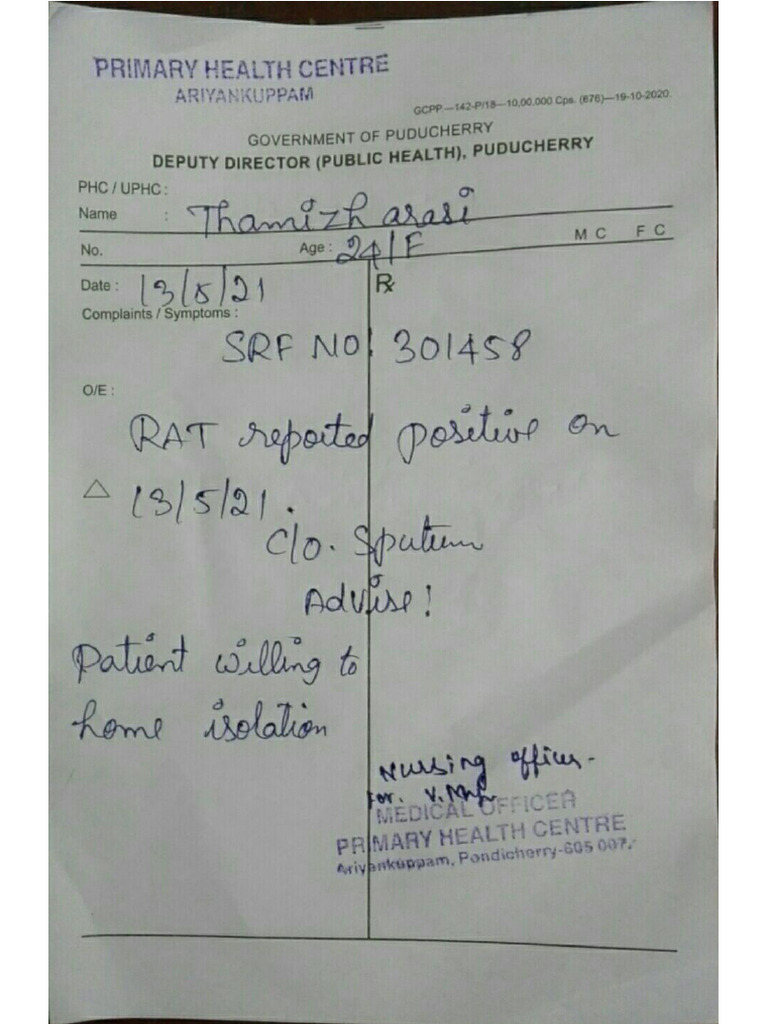 PRIMARY HEALTH CENTRE
ARIYANKUPPAM
GCPP—142-P/18—10,00,000 Cps. (676)—19-10-2020.
GOVERNMENT OF PUDUCHERRY
DEPUTY DIRECTOR (PUBLIC HEALTH), PUDUCHERRY
PHC / UPHC :
Name : Thamizh arasi
No. Age : 24/F M C F C
Date : 13/5/21 Rx
Complaints / Symptoms :
SRF NO: 301458
O/E :
RAT reported positive on
△ 13/5/21.
C/O. Sputum
Advise!
Patient willing to
home isolation
Nursing officer-
for. V.
MEDICAL OFFICER
PRIMARY HEALTH CENTRE
Ariyankuppam, Pondicherry-605 007.